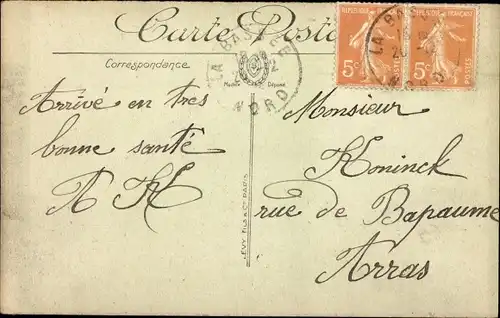 Carte Postale
RÉPUBLIQUE FRANÇAISE
5c 5c
POSTES POSTES
LA BASSÉE
NORD
Correspondance
Modèle Déposé
Arrivé en tres
bonne santé
A K
LEVY FILS & Cie PARIS
Monsieur
Koninck
rue de Bapaume
Arras